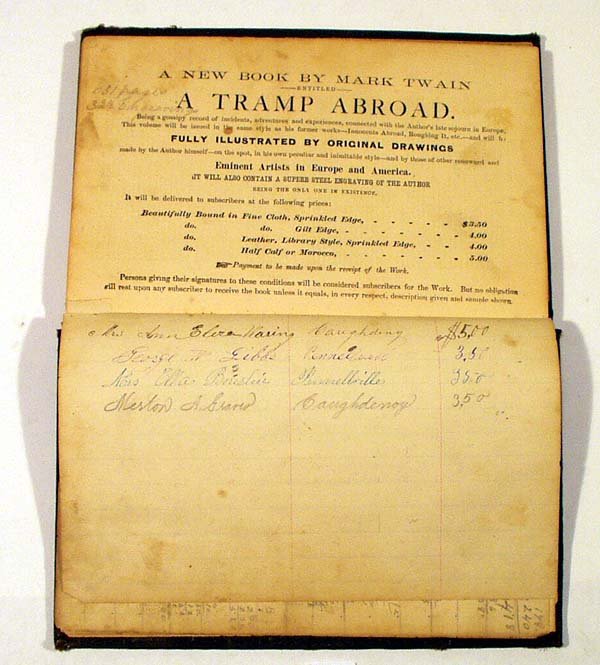 A NEW BOOK BY MARK TWAIN
ENTITLED
A TRAMP ABROAD.
Being a gossipy record of incidents, adventures and experiences, connected with the Author's late sojourn in Europe.
This volume will be issued in the same style as his former works—Innocents Abroad, Roughing It, etc.—and will be
FULLY ILLUSTRATED BY ORIGINAL DRAWINGS
made by the Author himself—on the spot, in his own peculiar and inimitable style—and by those of other renowned and
Eminent Artists in Europe and America.
IT WILL ALSO CONTAIN A SUPERB STEEL ENGRAVING OF THE AUTHOR
BEING THE ONLY ONE IN EXISTENCE.
It will be delivered to subscribers at the following prices:
Beautifully Bound in Fine Cloth, Sprinkled Edge, - - - - - $3.50
do. do. Gilt Edge, - - - - - 4.00
do. Leather, Library Style, Sprinkled Edge, - - - 4.00
do. Half Calf or Morocco, - - - - - 5.00
☞ Payment to be made upon the receipt of the Work.
Persons giving their signatures to these conditions will be considered subscribers for the Work. But no obligation
will rest upon any subscriber to receive the book unless it equals, in every respect, description given and sample shown.
Mrs Ann Eliza Waring Caughdenoy $5.00
George W Gibbs Pennellville 3.50
Mrs Pennellville 3.50
Caughdenoy 3.50